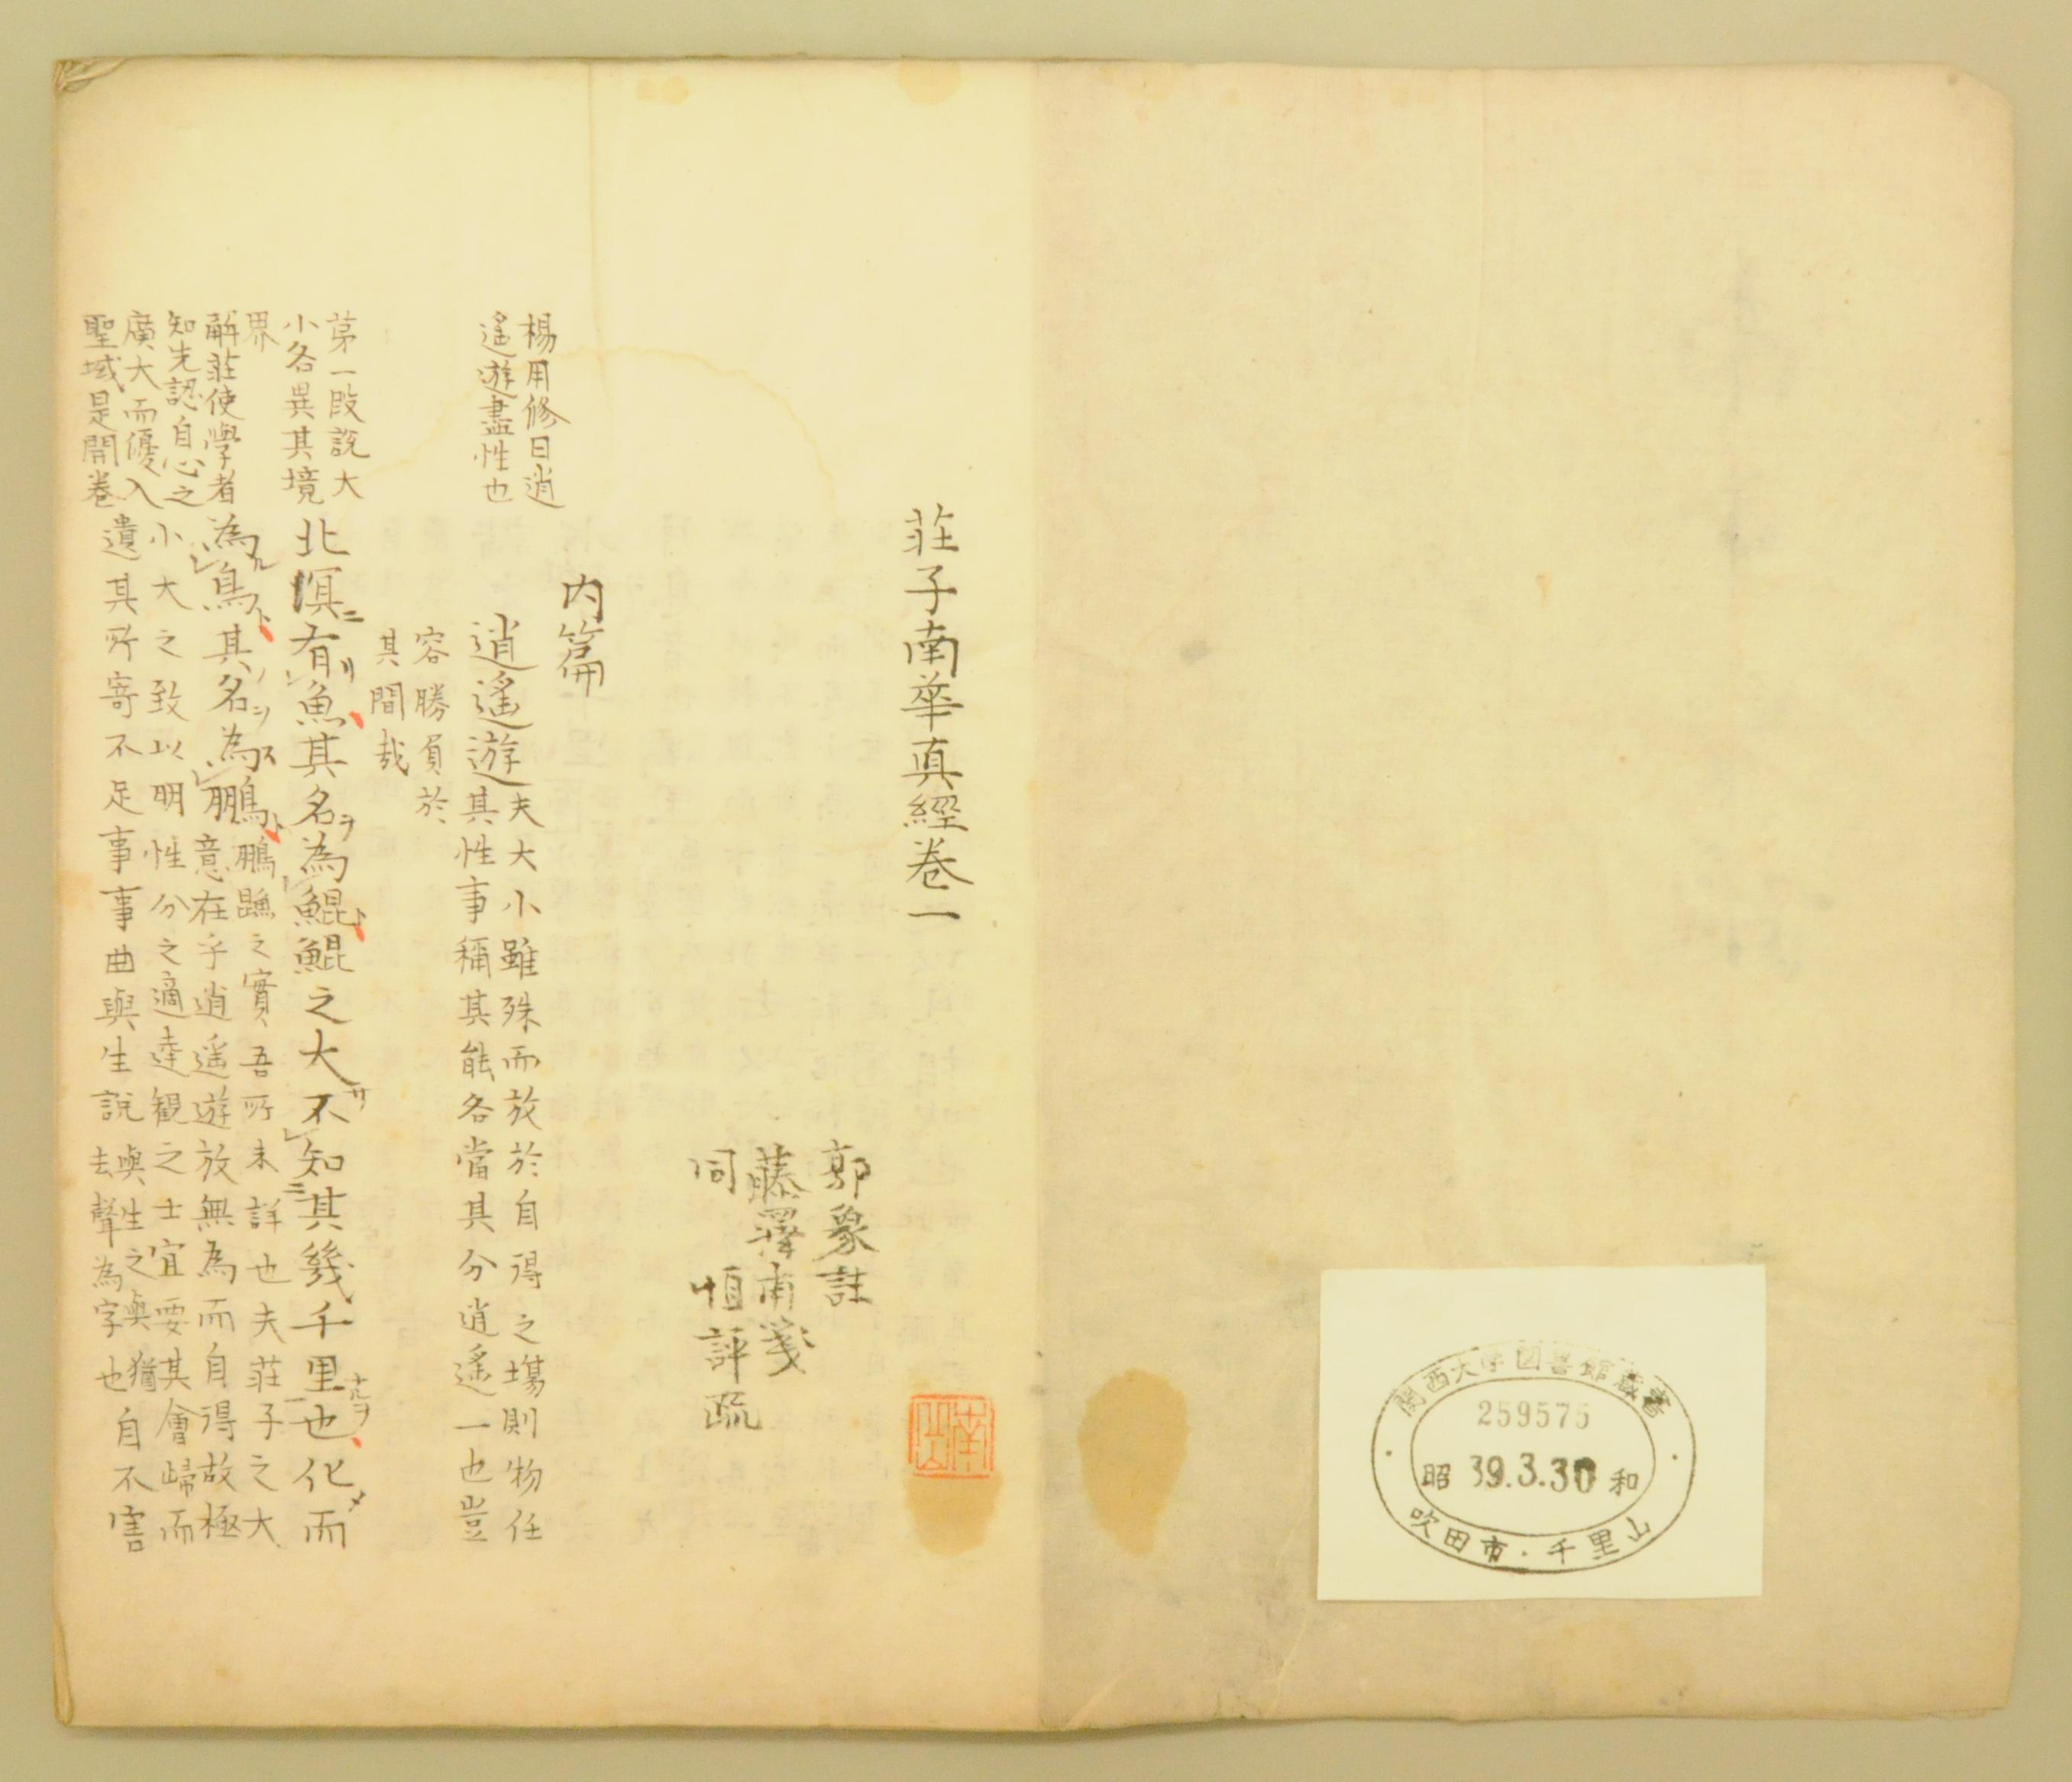 関西大学図書館蔵書
259575
昭和 39.3.30
吹田市・千里山
荘子南華真經巻一
郭象註
藤澤甫箋
同 恒評疏
内篇
楊用修曰逍
遙遊盡性也
逍遙遊
夫大小雖殊而放於自得之塲則物任
其性事稱其能各當其分逍遙一也豈
容勝負於
其間哉
第一段說大
小各異其境
界
解莊使學者
知先認自心之
廣大而優入
聖域是開卷
北溟ニ有リ魚其名ヲ為鯤ト鯤之大サ不知ニ其幾千里ナルヲ也化而
為ル鳥ト其ノ名ヲ為ス鵬ト
鵬鷦之實吾所未詳也夫莊子之大
意在乎逍遙遊放無為而自得故極
小大之致以明性分之適達観之士宜要其會歸而
遺其所寄不足事事曲與生說
與生之與猶
去聲為字也
自不害